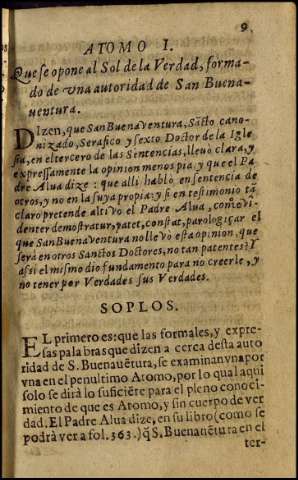 9
ATOMO I.
Que se opone al Sol de la Verdad, forma-
do de vna autoridad de San Buena-
uentura.
DIzen, que San Buenaventura, Sãcto cano-
nizado, Serafico y sexto Doctor de la Igle
sia, en el tercero de las Sentencias, lleuò clara, y
expressamente la opinion menos pia, y que el Pa
dre Alua dize: que alli hablò en sentencia de
otros, y no en la suya propia: y si en testimonio tã
claro pretende altivo el Padre Alua, comò vi-
denter demostratur, patet, constat, parologiçar el
que San Buenaventura no lleuò esta opinion, que
serà en otros Sanctos Doctores, no tan patentes? Y
assi el mismo dio fundamento para no creerle, y
no tener por Verdades sus Verdades.
SOPLOS.
EL primero es: que las formales, y expre-
sas palabras que dizen a cerca desta auto
ridad de S. Buenauẽtura, se examinan vna por
vna en el penultimo Atomo, por lo qual aqui
solo se dirà lo suficiẽte para el pleno conoci-
miento de que es Atomo, y sin cuerpo de ver
dad. El Padre Alua dize, en su libro (como se
podrà ver a fol. 363.) q̃ S. Buenauẽtura en el
ter-